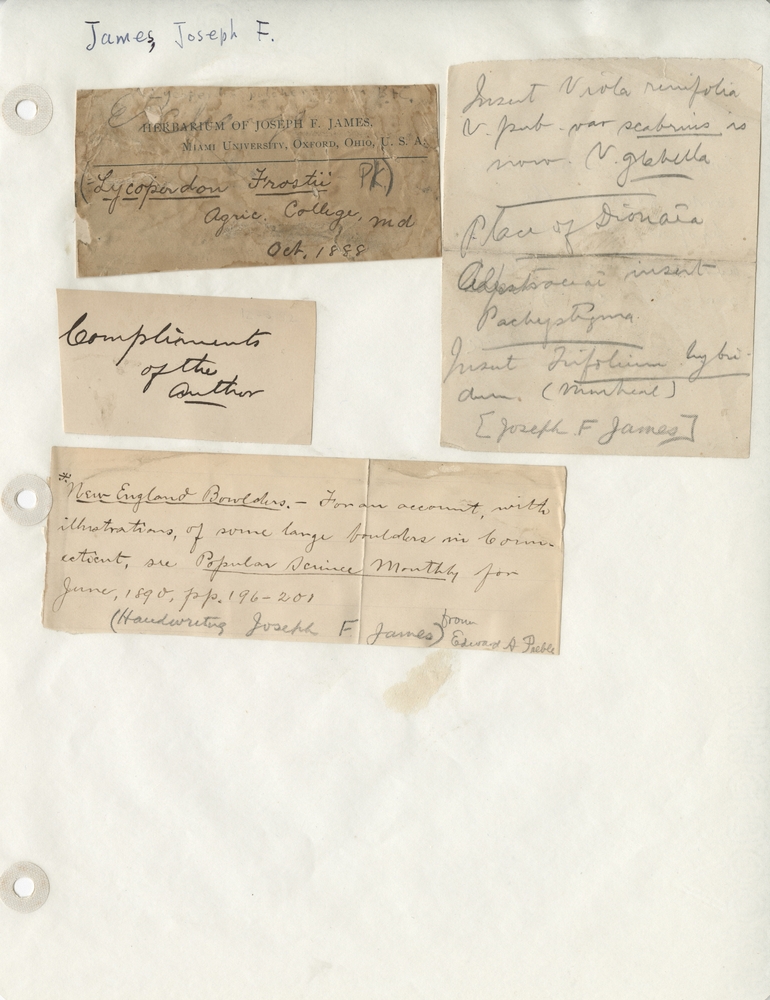 James, Joseph F.
HERBARIUM OF JOSEPH F. JAMES.
MIAMI UNIVERSITY, OXFORD, OHIO, U. S. A.
(Lycoperdon Frostii Pk)
Agric. College, Md
Oct. 1888
Insert Viola renifolia
V. pub. var scabrius is
now. V. glabella
Place of Dionaea
insert
Pachystigma.
Insert Trifolium hybri-
dum. (Montreal)
[Joseph F James]
Compliments
of the
Author
*New England Bowlders. – For an account, with
illustrations, of some large boulders in Conn-
ecticut, see Popular Science Monthly for
June, 1890, pp. 196-201
(Handwriting Joseph F James) from
Edward A